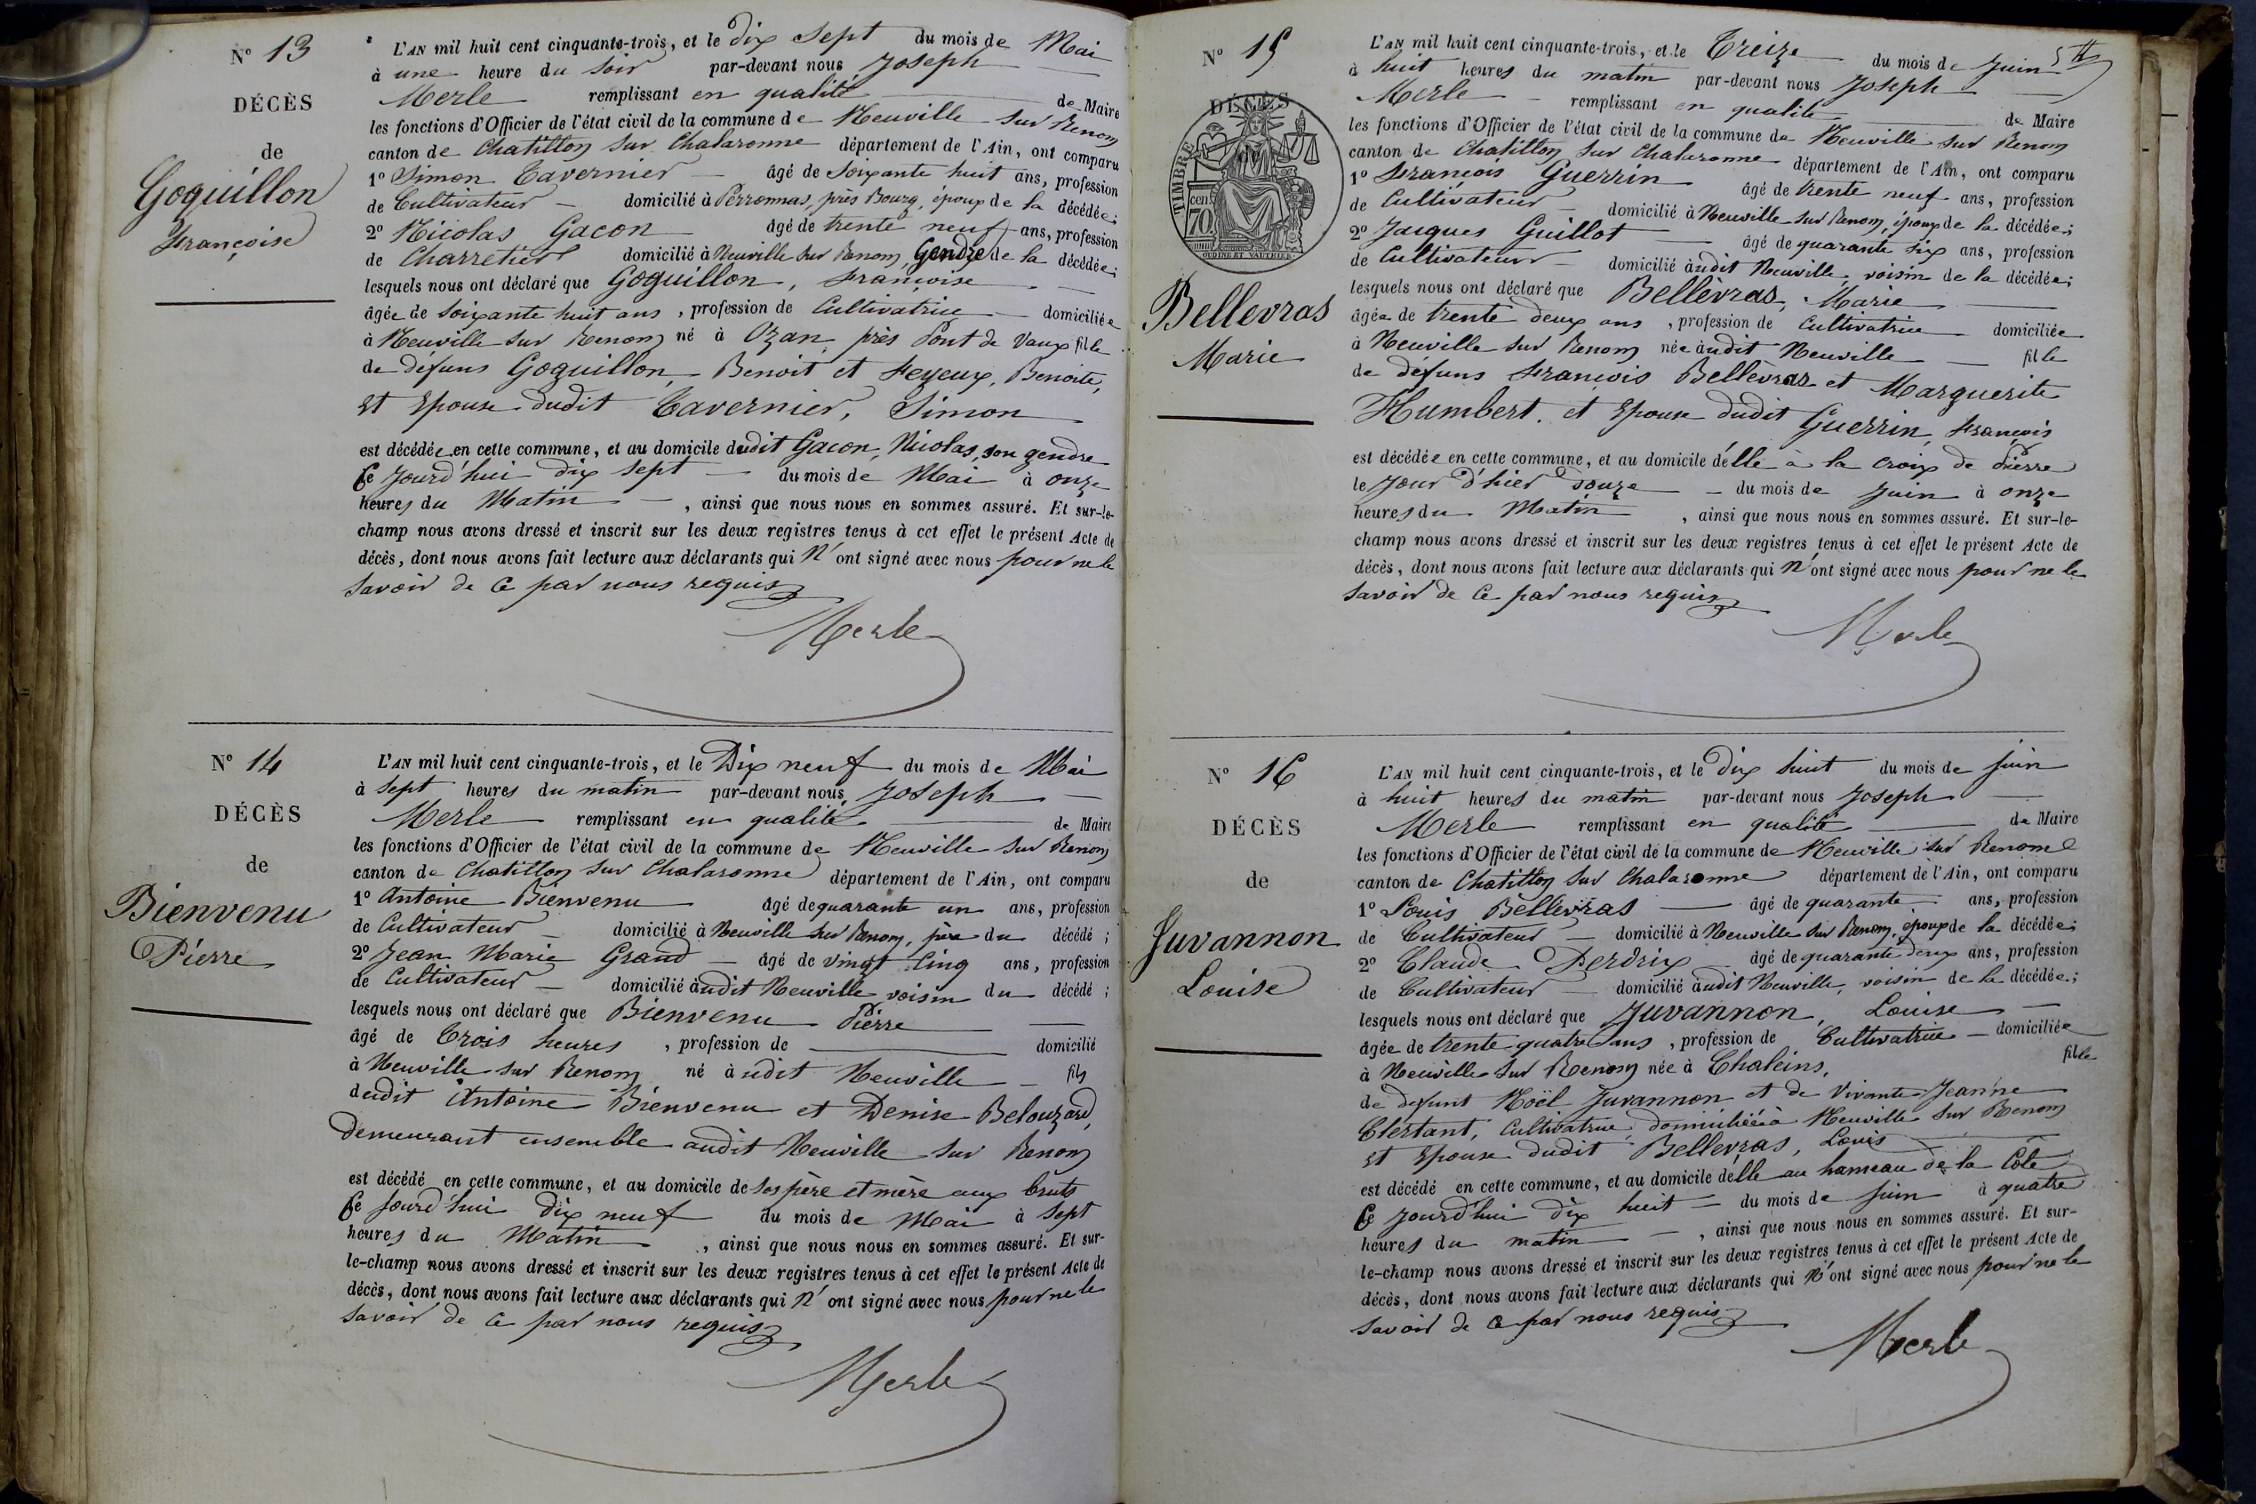 N° 13
DÉCÈS
de
Goquillon
Françoise
L'AN mil huit cent cinquante-trois, et le dix sept du mois de Mai
à une heure du soir par-devant nous Joseph
Merle remplissant en qualité de Maire
les fonctions d'Officier de l'état civil de la commune de Neuville sur Renom
canton de Chatillon sur Chalaronne département de l'Ain, ont comparu
1° Simon Tavernier âgé de soixante huit ans, profession
de Cultivateur domicilié à Perronnas, près Bourg, époux de la décédée;
2° Nicolas Gacon âgé de trente neuf ans, profession
de Charretier domicilié à Neuville sur Renom, Gendre de la décédée;
lesquels nous ont déclaré que Goquillon, Françoise
âgée de soixante huit ans, profession de Cultivatrice domiciliée
à Neuville sur Renom né à Ozan, près Pont de Vaux fille
de défuns Goquillon, Benoit et Feyeux, Benoite,
et Epouse dudit Tavernier, Simon
est décédée en cette commune, et au domicile dudit Gacon, Nicolas, son gendre
Ce jourd'hui dix sept du mois de Mai à onze
heures du Matin, ainsi que nous nous en sommes assuré. Et sur-le-
champ nous avons dressé et inscrit sur les deux registres tenus à cet effet le présent Acte de
décès, dont nous avons fait lecture aux déclarants qui n'ont signé avec nous pour ne le
savoir de ce par nous requis
Merle
N° 14
DÉCÈS
de
Bienvenu
Pierre
L'AN mil huit cent cinquante-trois, et le Dix neuf du mois de Mai
à sept heures du matin par-devant nous, Joseph
Merle remplissant en qualité de Maire
les fonctions d'Officier de l'état civil de la commune de Neuville sur Renom
canton de Chatillon sur Chalaronne département de l'Ain, ont comparu
1° Antoine Bienvenu âgé de quarante un ans, profession
de Cultivateur domicilié à Neuville sur Renom, père du décédé;
2° Jean Marie Grand âgé de vingt cinq ans, profession
de Cultivateur domicilié àudit Neuville voisin du décédé;
lesquels nous ont déclaré que Bienvenu Pierre
âgé de Trois heures, profession de domicilié
à Neuville sur Renom né àudit Neuville fils
dudit Antoine Bienvenu et Denise Belouzard,
demeurant ensemble audit Neuville sur Renom
est décédé en cette commune, et au domicile de ses père et mère aux bruts
Ce jourd'hui dix neuf du mois de Mai à sept
heures du Matin, ainsi que nous nous en sommes assuré. Et sur-
le-champ nous avons dressé et inscrit sur les deux registres tenus à cet effet le présent Acte de
décès, dont nous avons fait lecture aux déclarants qui n'ont signé avec nous pour ne le
savoir de ce par nous requis
Merle
N° 15
DÉCÈS
TIMBRE
cen
70
OUDINE ET VAUTHIER
Bellevras
Marie
L'AN mil huit cent cinquante-trois, et le Treize du mois de Juin
à huit heures du matin par-devant nous Joseph
Merle remplissant en qualité de Maire
les fonctions d'Officier de l'état civil de la commune de Neuville sur Renom
canton de Chatillon sur Chalaronne département de l'Ain, ont comparu
1° François Guerrin âgé de trente neuf ans, profession
de Cultivateur domicilié à Neuville sur Renom, époux de la décédée;
2° Jacques Guillot âgé de quarante six ans, profession
de Cultivateur domicilié àudit Neuville, voisin de la décédée;
lesquels nous ont déclaré que Bellevras, Marie
âgée de trente deux ans, profession de Cultivatrice domiciliée
à Neuville sur Renom née àudit Neuville fille
de défuns François Bellevras et Marguerite
Humbert, et Epouse dudit Guerrin, François
est décédée en cette commune, et au domicile d'elle à la croix de Pierre
le jour d'hier douze du mois de Juin à onze
heures du Matin, ainsi que nous nous en sommes assuré. Et sur-le-
champ nous avons dressé et inscrit sur les deux registres tenus à cet effet le présent Acte de
décès, dont nous avons fait lecture aux déclarants qui n'ont signé avec nous pour ne le
savoir de ce par nous requis
Merle
N° 16
DÉCÈS
de
Juvannon
Louise
L'AN mil huit cent cinquante-trois, et le dix huit du mois de Juin
à huit heures du matin par-devant nous Joseph
Merle remplissant en qualité de Maire
les fonctions d'Officier de l'état civil de la commune de Neuville sur Renom
canton de Chatillon sur Chalaronne département de l'Ain, ont comparu
1° Louis Bellevras âgé de quarante ans, profession
de Cultivateur domicilié à Neuville sur Renom, époux de la décédée;
2° Claude Perdrix âgé de quarante deux ans, profession
de Cultivateur domicilié àudit Neuville, voisin de la décédée;
lesquels nous ont déclaré que Juvannon, Louise
âgée de trente quatre ans, profession de Cultivatrice domiciliée
à Neuville sur Renom née à Chaleins, fille
de defunt Noël Juvannon et de vivante Jeanne
Clertant, Cultivatrice, domiciliée à Neuville sur Renom
et Epouse dudit Bellevras, Louis
est décédé en cette commune, et au domicile d'elle au hameau de la Côte
Ce jourd'hui dix huit du mois de Juin à quatre
heures du matin, ainsi que nous nous en sommes assuré. Et sur-
le-champ nous avons dressé et inscrit sur les deux registres tenus à cet effet le présent Acte de
décès, dont nous avons fait lecture aux déclarants qui n'ont signé avec nous pour ne le
savoir de ce par nous requis
Merle